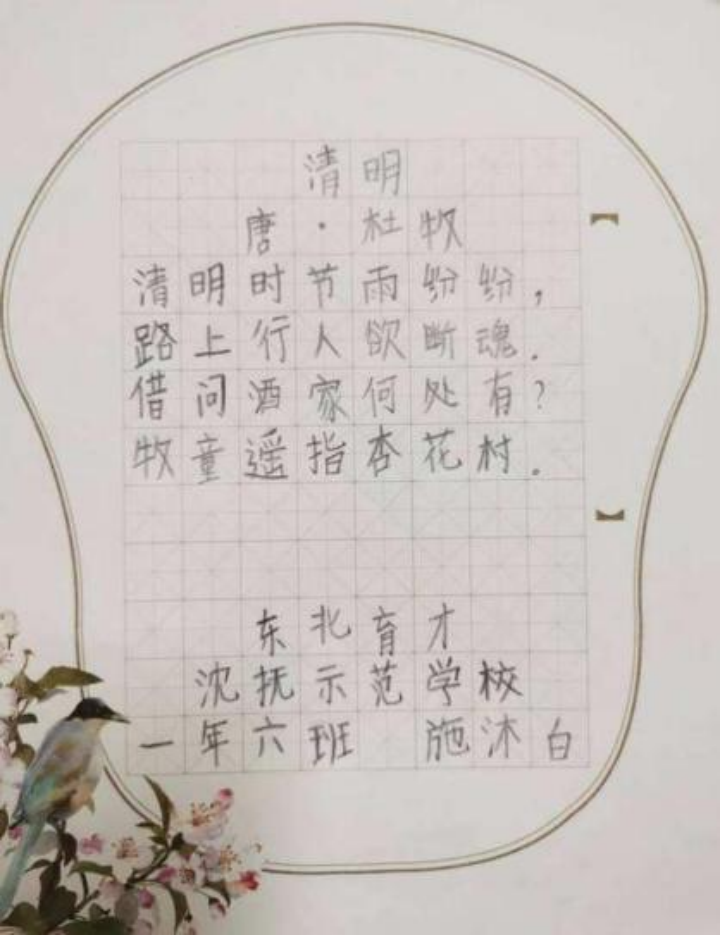 清明
唐·杜牧
清明时节雨纷纷,
路上行人欲断魂.
借问酒家何处有?
牧童遥指杏花村.
东北育才
沈抚示范学校
一年六班 施沐白